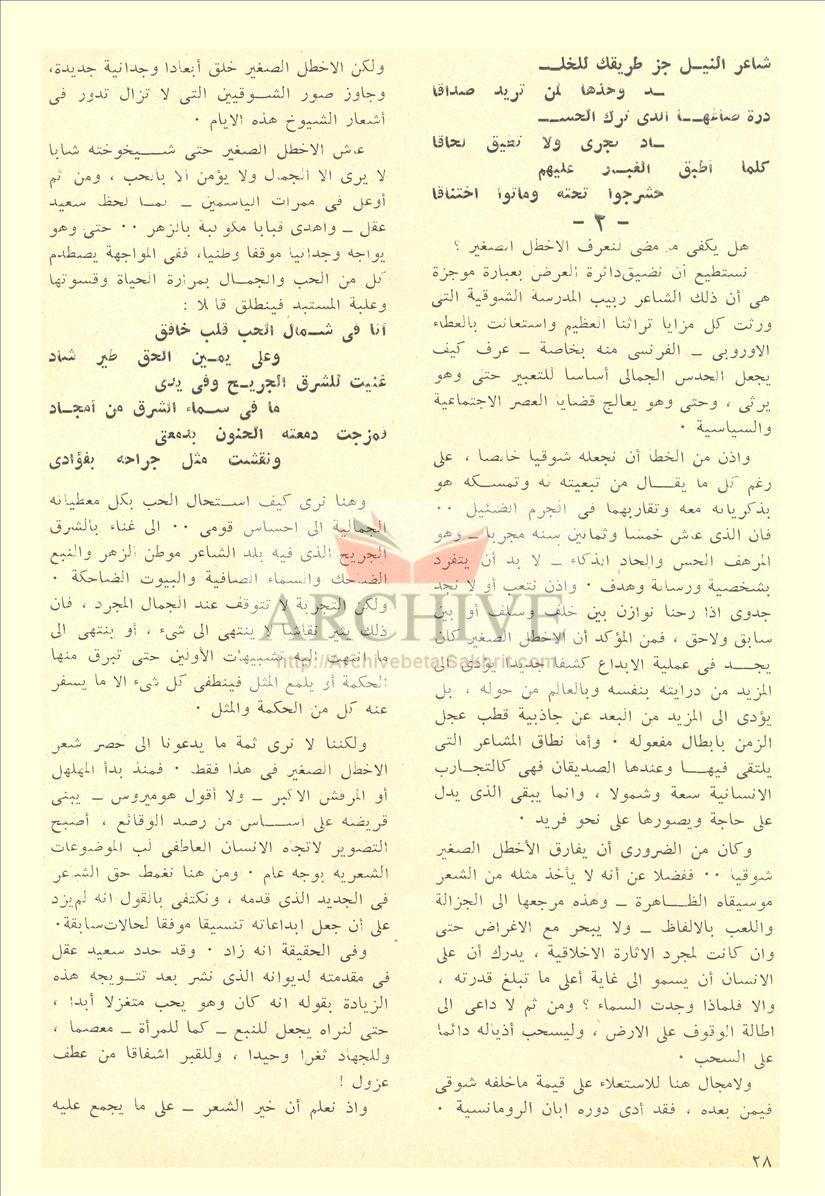 شاعر النيـل جز طريقك للخلـــ
ــد وخذها لمن تريد صداقا
درة صاغهـــا الذى ترك الحســـ
ـــاد تجرى ولا تطيق لحاقا
كلما أطبق الغبـــر عليهم
حشرجوا تحته وماتوا اختناقا
- ٣ -
هل يكفى ما مضى لنعرف الاخطل الصغير ؟
نستطيع أن نضيق دائرة العرض بعبارة موجزة
هى أن ذلك الشاعر ربيب المدرسة الشوقية التى
ورثت كل مزايا تراثنا العظيم واستعانت بالعطاء
الاوروبى ــ الفرنسى منه بخاصة ــ عرف كيف
يجعل الحدس الجمالى أساسا للتعبير حتى وهو
يرثى ، وحتى وهو يعالج قضايا العصر الاجتماعية
والسياسية ٠
واذن من الخطأ أن نجعله شوقيا خالصا ، على
رغم كل ما يقـــال من تبعيته له وتمسـكه هو
بذكرياته معه وتقاربهما فى الجرم الضئيل ٠٠
فان الذى عاش خمسا وثمانين سنه مجربا ــ وهو
المرهف الحس والحاد الذكاء ــ لا بد أن يتفرد
بشخصية ورسالة وهدف ٠ واذن نتعب أو لا نجد
جدوى اذا رحنا نوازن بين خلف وسلف أو بين
سابق ولاحق ، فمن المؤكد أن الاخطل الصغير كان
يجــد فى عملية الابداع كشفا جديدا يؤدى الى
المزيد من درايته بنفسه وبالعالم من حوله ، بل
يؤدى الى المزيد من البعد عن جاذبية قطب عجل
الزمن بابطال مفعوله ٠ وأما نطاق المشاعر التى
يلتقى فيهـــا وعندها الصديقان فهى كالتجارب
الانسانية سعة وشمولا ، وانما يبقى الذى يدل
على حاجة ويصورها على نحو فريد ٠
وكان من الضرورى أن يفارق الأخطل الصغير
شوقيا ٠٠ ففضلا عن أنه لا يأخذ مثله من الشعر
موسيقاه الظـــاهرة ــ وهذه مرجعها الى الجزالة
واللعب بالالفاظ ــ ولا يبحر مع الاغراض حتى
وان كانت لمجرد الاثارة الاخلاقية ، يدرك أن على
الانسان أن يسمو الى غاية أعلى ما تبلغ قدرته ،
والا فلماذا وجدت السماء ؟ ومن ثم لا داعى الى
اطالة الوقوف على الارض ، وليسحب أذياله دائما
على السحب ٠
ولامجال هنا للاستعلاء على قيمة ماخلفه شوقى
فيمن بعده ، فقد أدى دوره ابان الرومانسية ٠
ولكن الاخطل الصغير خلق أبعادا وجدانية جديدة،
وجاوز صور الشــوقيين التى لا تزال تدور فى
أشعار الشيوخ هذه الايام ٠
عاش الاخطل الصغير حتى شــيخوخته شابا
لا يرى الا الجمال ولا يؤمن الا بالحب ، ومن ثم
أوغل فى ممرات الياسمين ــ كما لحظ سعيد
عقل ــ واهدى قبابا مكوكبة بالزهر ٠٠ حتى وهو
يواجه وجدانيا موقفا وطنيا، ففى المواجهة يصطدم
كل من الحب والجمـــال بمرارة الحياة وقسوتها
وغلبة المستبد فينطلق قائلا :
أنا فى شــمال الحب قلب خافق
وعلى يمــين الحق طير شاد
غنيت للشرق الجريــح وفى يدى
ما فى ســماء الشرق من أمجــاد
فمزجت دمعته الحنون بدمعتى
ونقشت مثل جراحه بفؤادى
وهنا نرى كيف استـحال الحب بكل معطياته
الجمالية الى احساس قومى ٠٠ الى غناء بالشرق
الجريح الذى فيه بلد الشاعر موطن الزهر والنبع
الضاحك والسماء الصافية والبيوت الضاحكة ٠
ولكن التجربة لا تتوقف عند الجمال المجرد ، فان
ذلك يثير نقاشا لا ينتهى الى شىء ، أو ينتهى الى
ما انتهت اليه تشبيهات الأولين حتى تبرق منها
الحكمة أو يلمع المثل فينطفى كل شىء الا ما يسفر
عنه كل من الحكمة والمثل ٠
ولكننا لا نرى ثمة ما يدعونا الى حصر شعر
الاخطل الصغير فى هذا فقط ٠ فمنذ بدأ المهلهل
أو المرقش الاكبر ــ ولا أقول هوميروس ــ يبنى
قريضه على اســـاس من رصد الوقائع ، أصبح
التصوير لاتجاه الانسان العاطفى لب الموضوعات
الشعريه بوجه عام ٠ ومن هنا نغمط حق الشاعر
فى الجديد الذى قدمه ، ونكتفى بالقول انه لم يزد
على أن جعل ابداعاته تنسيقا موفقا لحالات سابقة٠
وفى الحقيقة انه زاد ٠ وقد حدد سعيد عقل
فى مقدمته لديوانه الذى نشر بعد تتــويجه هذه
الزيادة بقوله انه كان وهو يحب متغزلا أبدا ،
حتى لنراه يجعل للنبع ــ كما للمرأة ــ معصما ،
وللجهاد ثغرا وحيدا ، وللقبر اشفاقا من عطف
عزول !
واذ نعلم أن خير الشعر ــ على ما يجمع عليه
ARCHIVE
http://Archivebeta.Sakhrit.com
٢٨